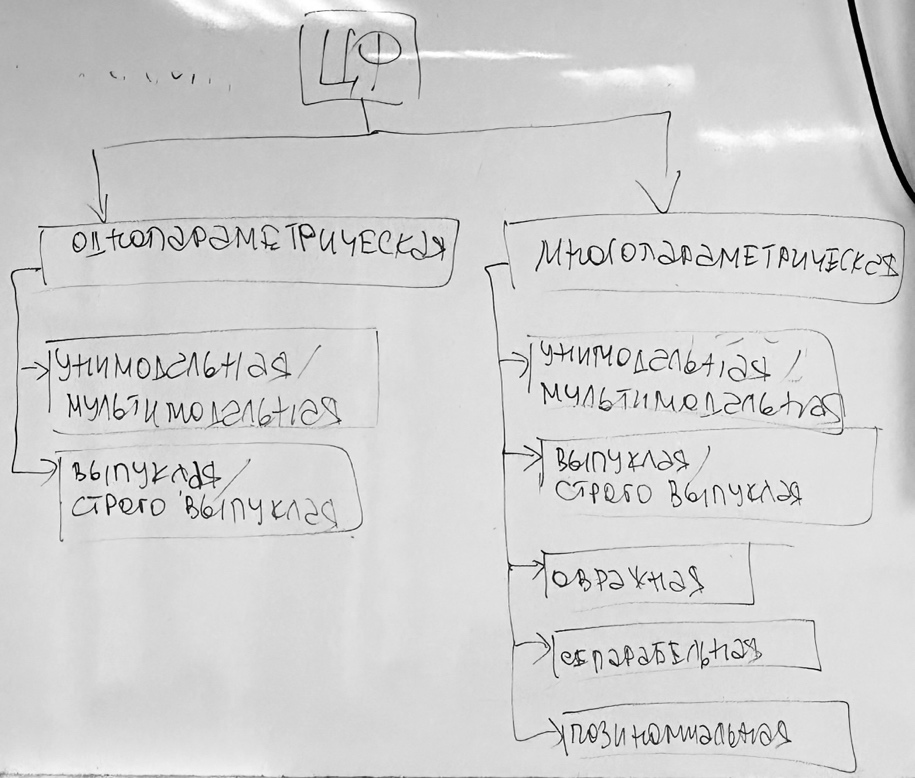 ЦФ
ОДНОПАРАМЕТРИЧЕСКАЯ
УНИМОДАЛЬНАЯ /
МУЛЬТИМОДАЛЬНАЯ
ВЫПУКЛАЯ /
СТРОГО ВЫПУКЛАЯ
МНОГОПАРАМЕТРИЧЕСКАЯ
УНИМОДАЛЬНАЯ /
МУЛЬТИМОДАЛЬНАЯ
ВЫПУКЛАЯ /
СТРОГО ВЫПУКЛАЯ
ОВРАЖНАЯ
СЕПАРАБЕЛЬНАЯ
ПОЗИНОМИАЛЬНАЯ